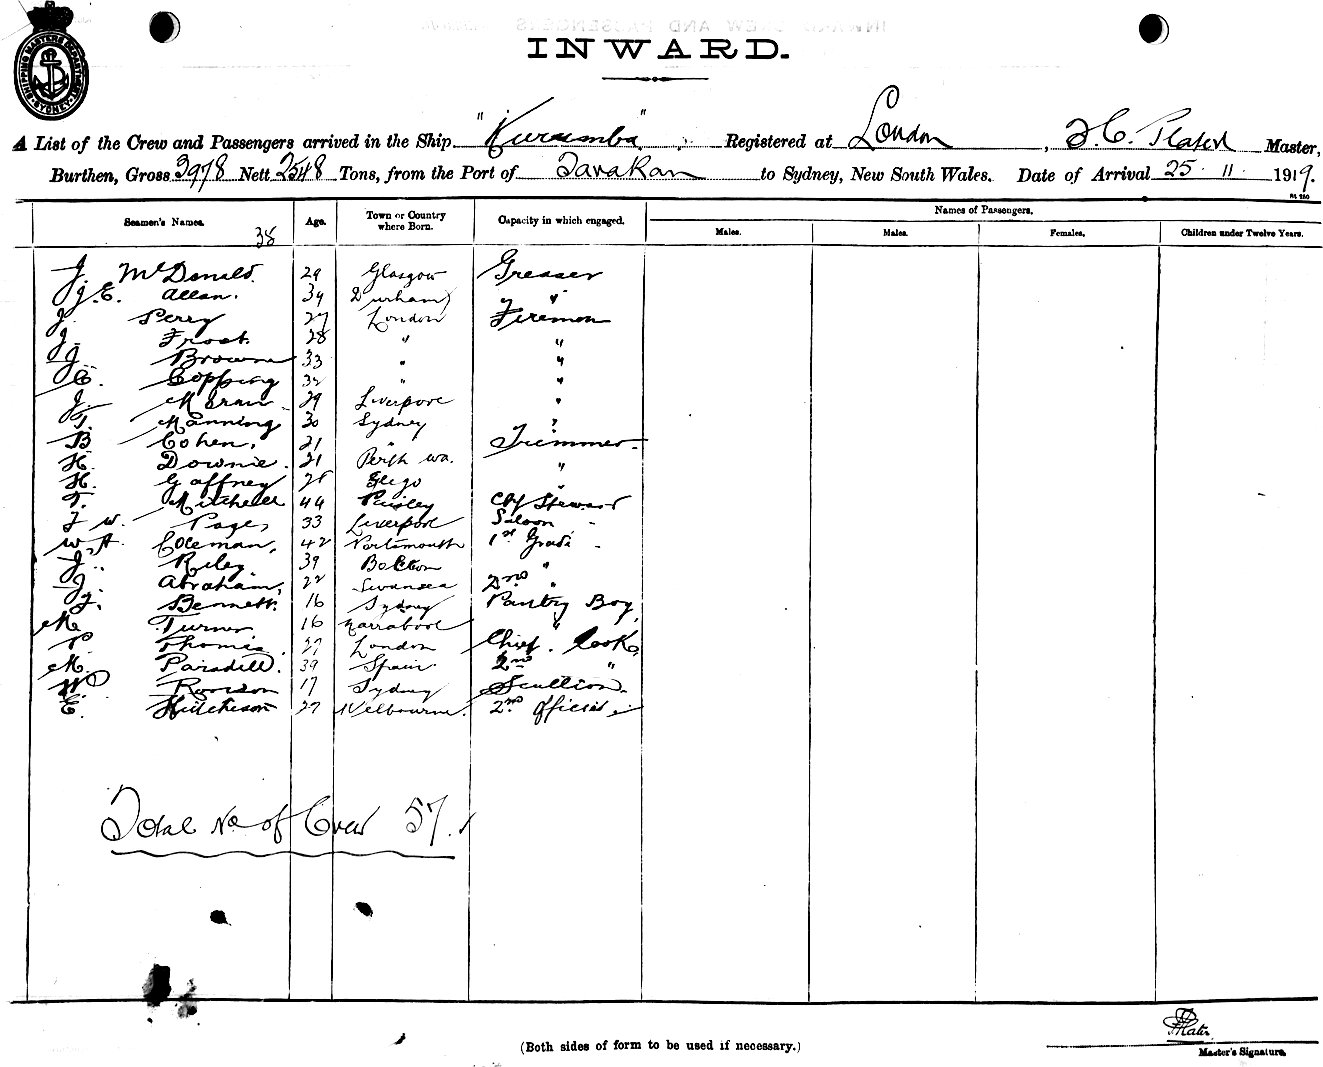 INWARD.
SHIPPING MASTERS DEPARTMENT SYDNEY
A List of the Crew and Passengers arrived in the Ship "Kurumba" Registered at London, Master,
Burthen, Gross 3978 Nett 2548 Tons, from the Port of Tarakan to Sydney, New South Wales. Date of Arrival 25 11 1919.
Seamen's Names. Age. Town or Country where Born. Capacity in which engaged. Names of Passengers.
Males. Males. Females. Children under Twelve Years.
38
J. McDonald. 29 Glasgow Greaser
J.E. Allan. 39 Durham "
J. Perry 27 London Firemen
J. Frost. 28 " "
J. Browne 33 " "
C. Copping 32 " "
J. Moran 29 Liverpool "
T. Manning 30 Sydney "
B Cohen, 21 " Trimmer
H. Downie. 21 Perth wa. "
H. Gaffney 28 "
T. Mitchell 44 Paisley Chf Steward
F W. Page, 33 Liverpool Saloon "
W.A. Coleman, 42 Portsmouth 1st Grade "
J. Riley. 39 Bolton "
J. Abraham, 22 Swansea 2nd "
J. Bennett. 16 Sydney Pantry Boy
M Turner. 16 "
P. Thomis 37 London Chief. Cook
M. Paradell. 39 Spain. 2nd "
W Rowson 17 Sydney Scullion.
E. Hutcheson 27 Melbourne. 2nd Officer
Total No of Crew 57.
(Both sides of form to be used if necessary.)
Master's Signature.